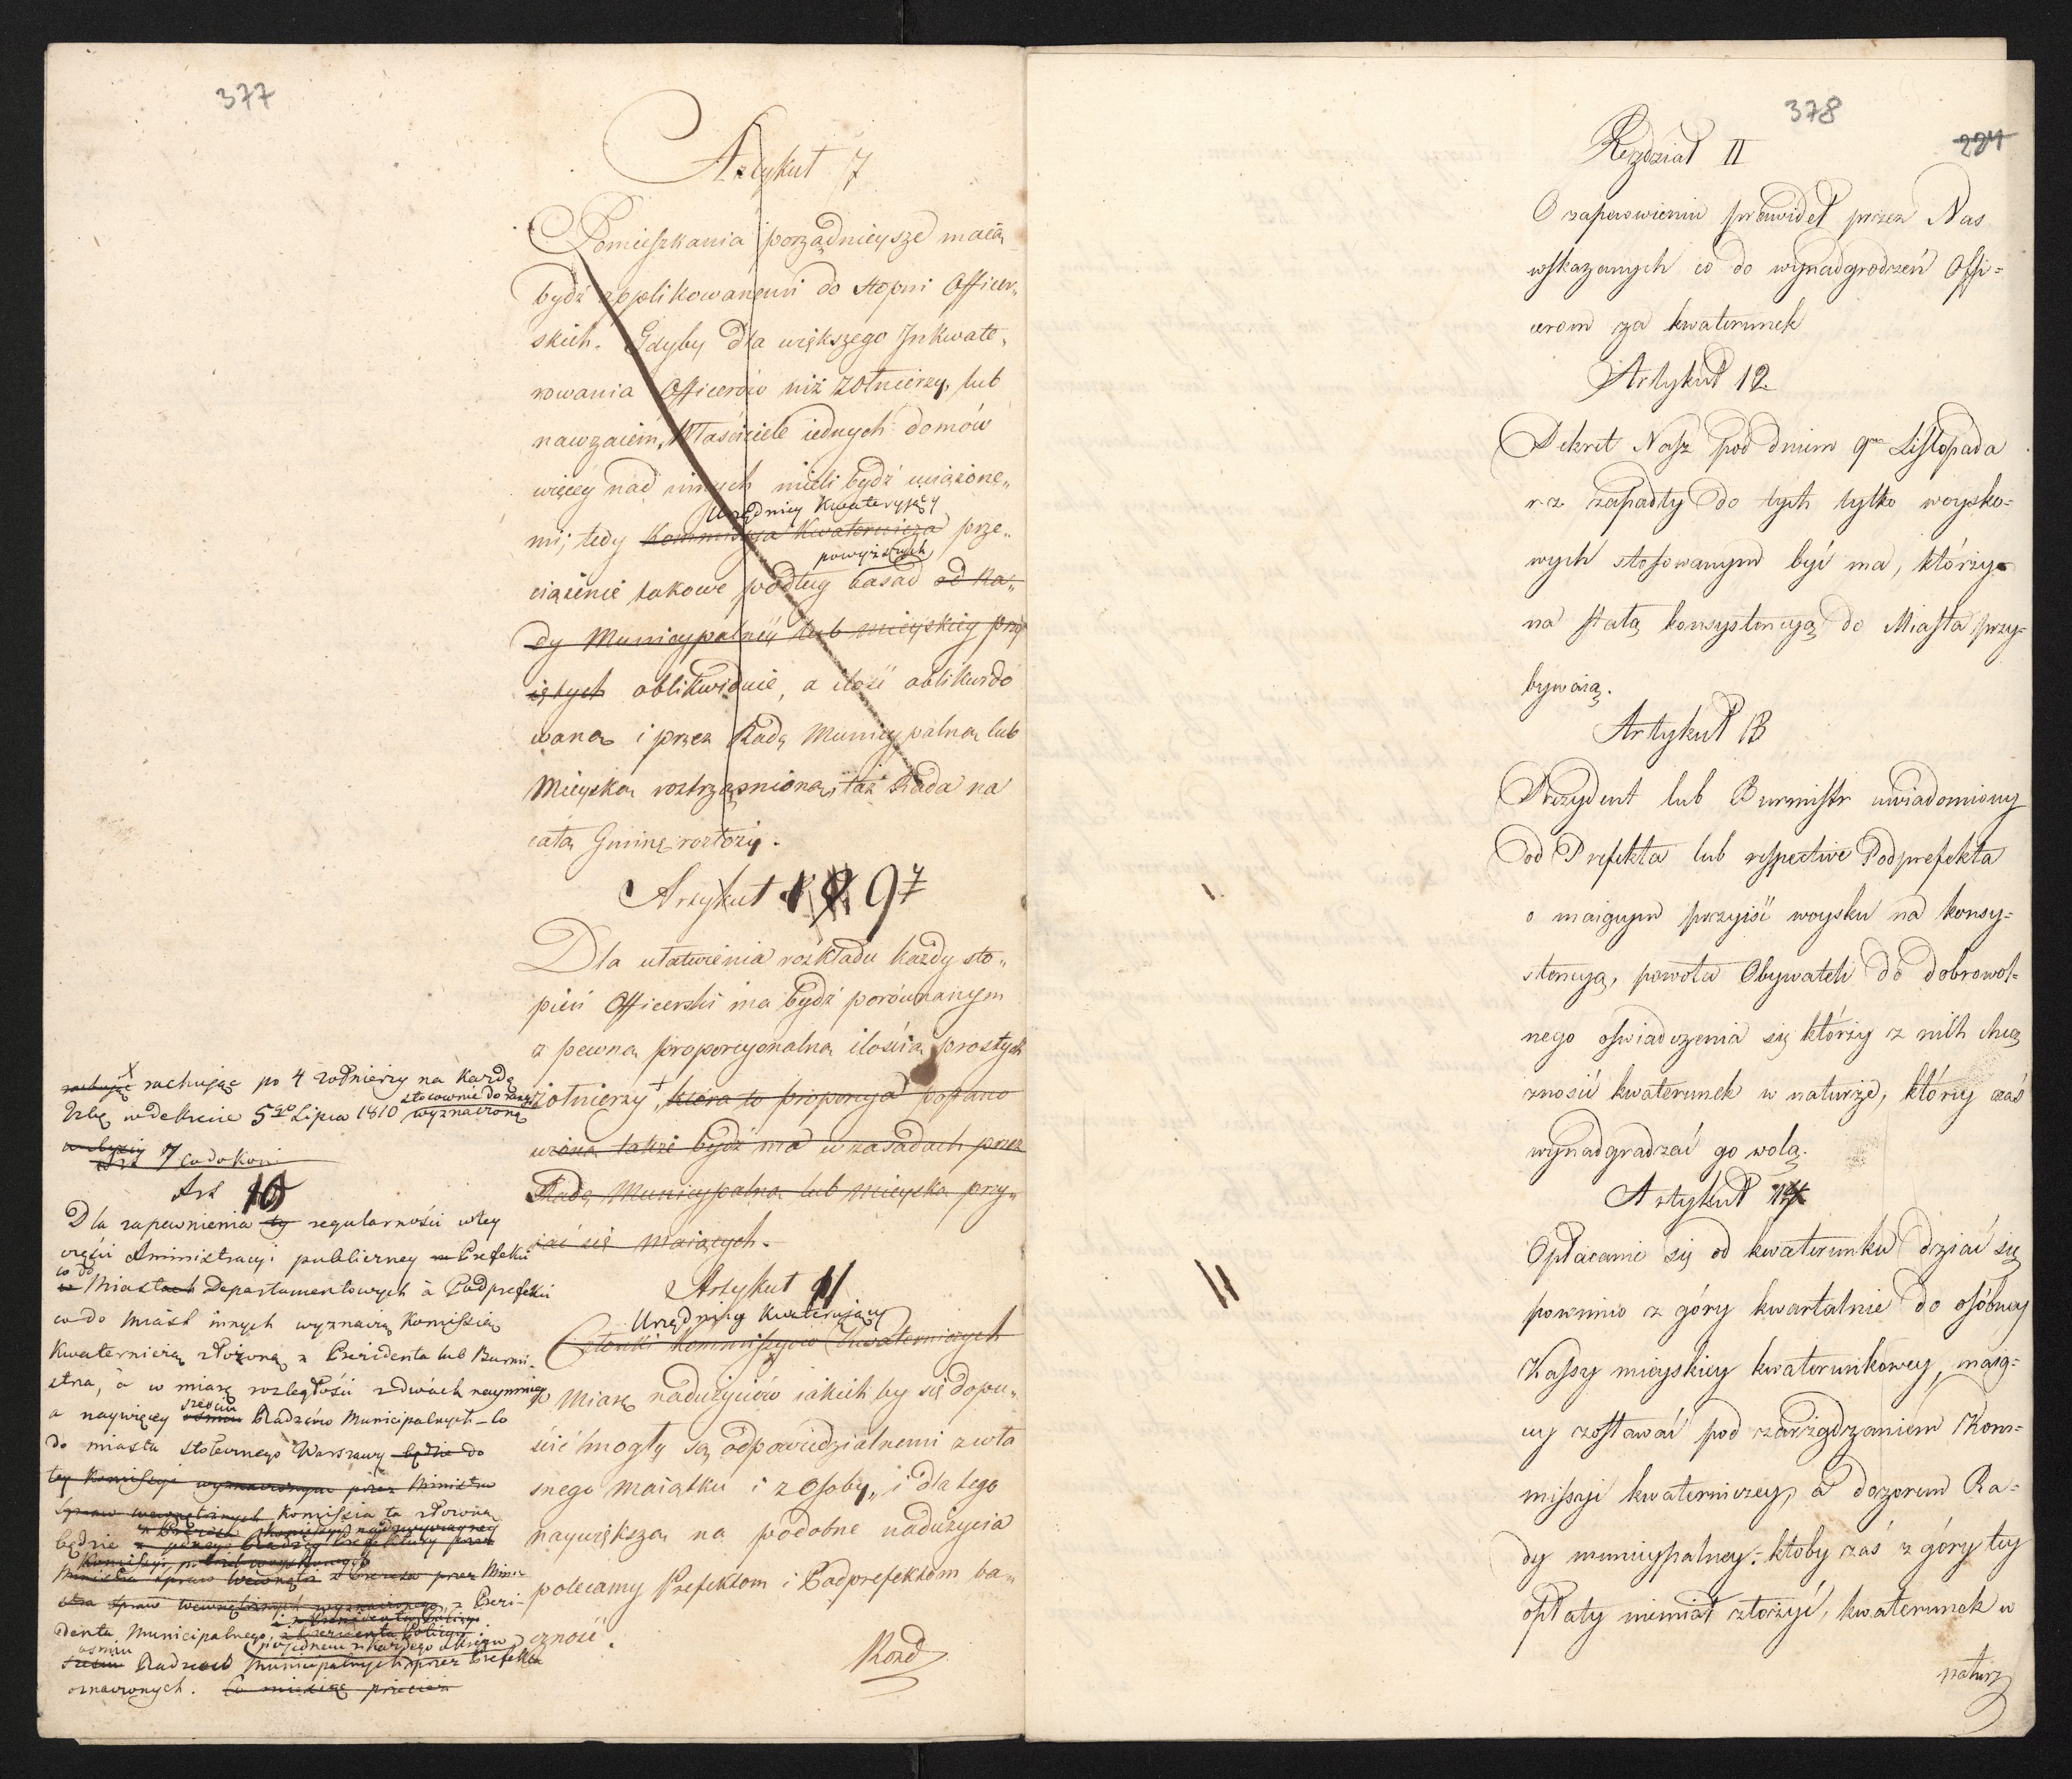 377
Artykuł 7
Pomieszkania porządnieysze maią
bydź applikowanemi do stopni Officer„
skich. Gdyby dla większego Inkwate„
rowania Officerów niż Żołnierzy, lub
nawzaiem, Właściciele iednych domów
więcey nad innych mieli bydź uciążone„
Urzędnicy Kwateruiący
mi; tedy Kommissya Kwaternicza prze„
powyższych
ciążenie takowe podług zasad od Ra„
dy Municypalney lub mieyskiey przy
iętych oblikwiduie, a ilość oblikwido
waną i przez Radę Municypalną lub
Mieyską roztrząśnioną, taż Rada na
całą Gminę rozłoży.
Artykuł 9 7
Dla ułatwienia rozkładu każdy sto„
pień Officerski ma bydź porównanym
z pewną proporcyonalną ilością prostych
żołnierzy, która to proporcya postano
wiona także bydź ma w zasadach przez
Radę Municypalną lub mieyską przy„
iąć się maiących.
Artykuł 11
Urzędnicy Kwateruiący
Członki Kommissyów Kwaterniczych
w Miarę nadużyciów iakich by się dopu„
ścić mogły są odpowiedzialnemi z wła
snego maiątku i z Osoby, i dla tego
naywiększą na podobne nadużycia
polecamy Prefektom i Podprefektom ba„
czność.
Rozd
rachując po 4 żołnierzy na każdą
stosownie do rangi
Izbę w dekrecie 5go Lipca 1810 wyznaczoną
Art 7 co do Koni
Art 10
Dla zapewnienia tey regularności w tey
części Aministracyi publiczney Prefekci
co do
w Miastach Departamentowych a Podprefekci
co do Miast innych wyznaczą Komissią
Kwaterniczą złożoną z Prezidenta lub Burmi-
stra, a w miarę rozległości z dwóch naymniey
sześciu
a naywięcey ośmiu Radzców Municipalnych - Co
do miasta stołecznego Warszawy będzie do
tey Komissyi wyznaczonym przez Ministra
Spraw wewnętrznych Komissia ta złożona
będzie z jednego Radzcy Prefektury przez
Ministra spraw wewnętr: z Prezesa przez Mini-
stra spraw wewnętrznych wyznaczonego, z Prezi-
denta Municipalnego, z Prezidenta Policyi i
ośmiu po jednemu z każdego okręgu
sześciu Radzców Municipalnych przez Prefekta
oznaczonych. Co miesiąc przecież
378
224
Rozdział II
O zapewnieniu prawideł przez Nas
wskazanych co do wynadgrodzeń Offi=
cerom za kwaterunek
Artykuł 12.
Dekret Nasz pod dniem 9m Listopada
r. z. zapadły do tych tylko woysko=
wych stosowanym być ma, którzy
na stałą konsystencyą do Miasta przy=
bywaią.
Artykuł 13
Prezydent lub Burmistr uwiadomiony
od Prefekta lub respective Podprefekta
o maiącym przyiść woysku na konsy=
stencyą, powoła Obywateli do dobrowol=
nego oświadczenia się którzy z nich chcą
znosić kwaterunek w naturze, którzy zaś
wynadgradzać go wolą.
Artykuł 14
Opłacanie się od kwaterunku dziać się
powinno z góry kwartalnie do osóbney
Kassy mieyskiey kwaterunkowey, maią=
cy zostawać pod zarządzaniem Kom=
missyi kwaterniczey, a dozorem Ra=
dy municypalney: ktoby zaś z góry tey
opłaty niemiał złożyć, kwaterunek w
naturz